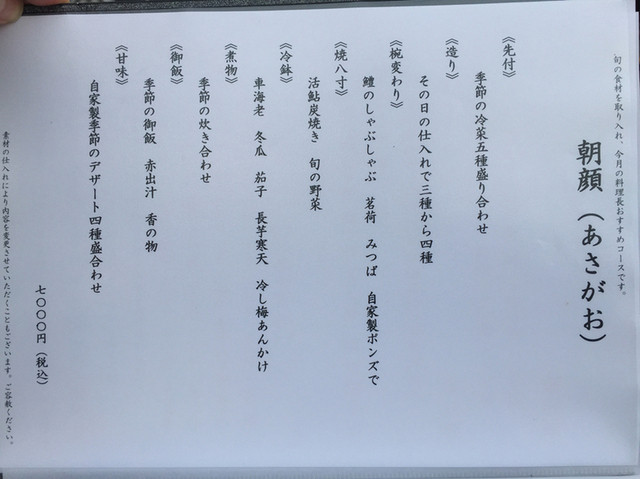 旬の食材を取り入れ、今月の料理長おすすめコースです。
朝顔（あさがお）
《先付》
季節の冷菜五種盛り合わせ
《造り》
その日の仕入れで三種から四種
《椀変わり》
鱧のしゃぶしゃぶ 茗荷 みつば 自家製ポンズで
《焼八寸》
活鮎炭焼き 旬の野菜
《冷鉢》
車海老 冬瓜 茄子 長芋寒天 冷し梅あんかけ
《煮物》
季節の炊き合わせ
《御飯》
季節の御飯 赤出汁 香の物
《甘味》
自家製季節のデザート四種盛合わせ
七〇〇〇円（税込）
素材の仕入れにより内容を変更させていただくこともございます。ご容赦ください。